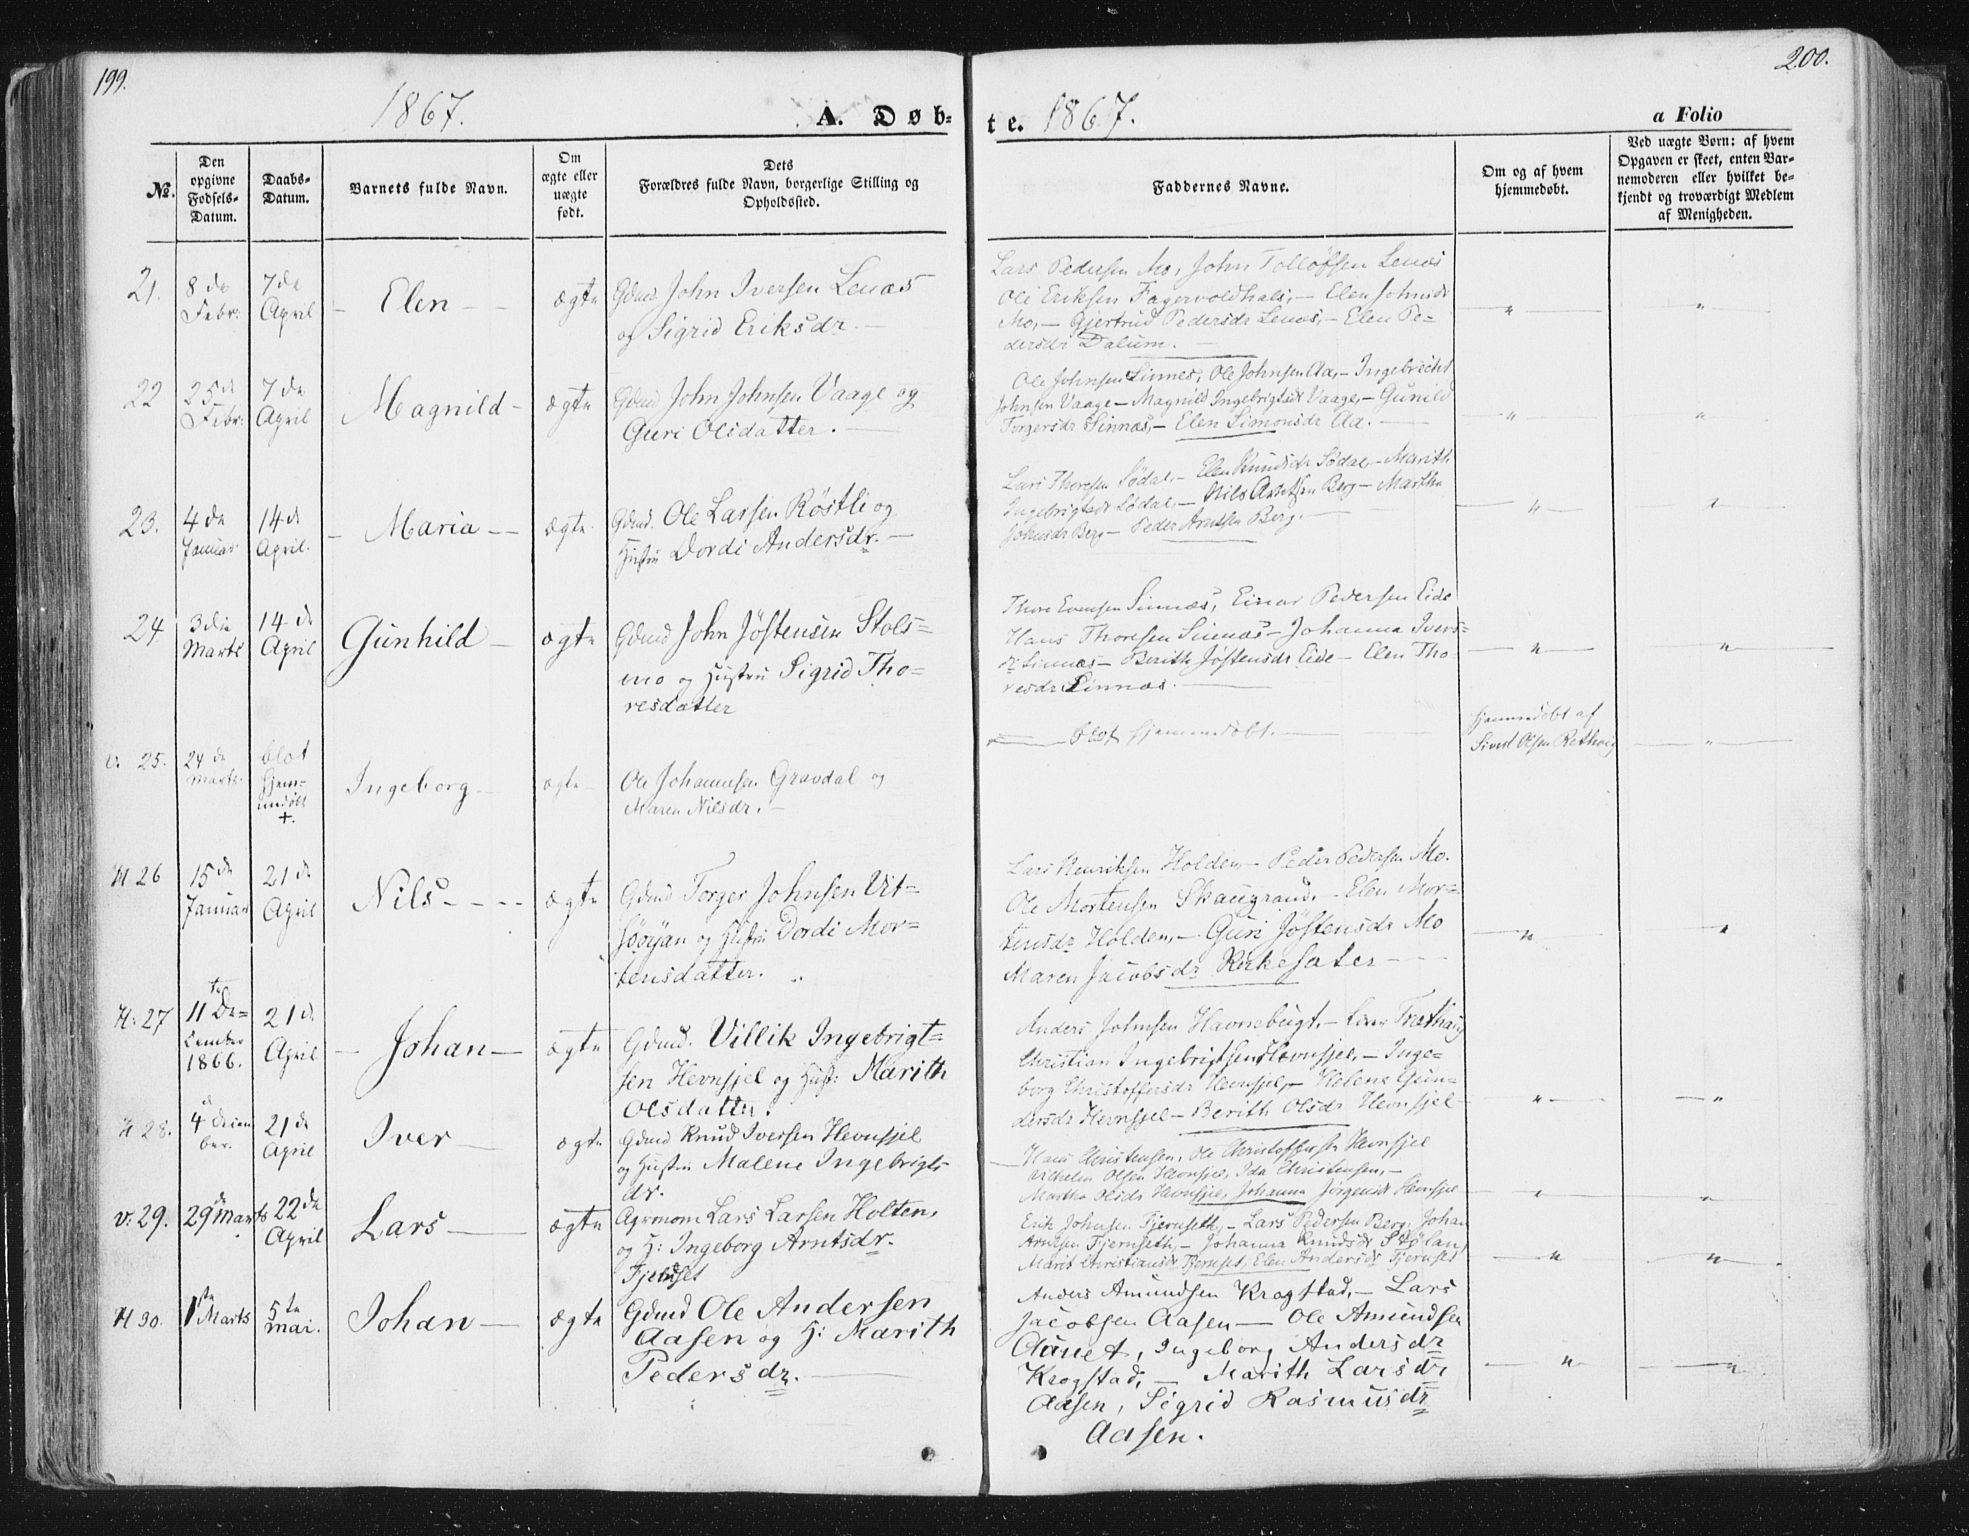 199.
200.
1867.
A. Døb-
te. 1867.
a Folio
№.
Den opgivne Fødsels-Datum.
Daabs-Datum.
Barnets fulde Navn.
Om ægte eller uægte født.
Dets Forældres fulde Navn, borgerlige Stilling og Opholdssted.
Faddernes Navne.
Om og af hvem hjemmedøbt.
Ved uægte Børn: af hvem Opgaven er skeet, enten Barnemoderen eller hvilket bekjendt og troværdigt Medlem af Menigheden.
21. 8de Febr: 7de April – Elen – ægte
Gdmd John Iversen Lenæs
og Sigrid Eriksdr. –
Lars Pedersen Mo, John Tollofsen Lenæs
Ole Eriksen Fagervoldhals, – Elen Johnsdr
Mo, – Gjertrud Pedersdr Lenæs, – Elen Pe-
dersdr Dalum. –
22 25de Febr: 7de April Magnild – ægte
Gdmd John Johnsen Vaage og
Guri Olsdatter. –
Ole Johnsen Sinnes, Ole Johnsen Aa, – Ingebrecht
Johnsen Vaage – Magnild Ingebrigtsdr Vaage, – Gunild
Torgersdr Sinnæs, – Elen Simonsdr Aa. –
23. 4de Januar 14de April. – Maria – ægte
Gdmd. Ole Larsen Röstli og
Hustru Dordi Andersdr. –
Lars Thoresen Södal, – Elen Knudsdr Södal, – Marith
Ingebrigtsdr Södal – Nils Arntsen Berg – Martha
Johnsdr Berg – Peder Arntsen Berg. –
24 3die Marts 14de April Gunhild – ægte
Gdmd John Jöstensen Stols-
mo og Hustru Sigrid Tho-
resdatter
Thore Evensen Sinnæs, Einar Pedersen Eide
Hans Thoresen Sinnæs – Johanna Ivers-
dr Sinnæs – Berith Jöstensdr Eide – Elen Tho-
resdr Sinnæs. –
v. 25. 24de Marts blot hjem-
medöbt +. Ingeborg – ægte
Ole Johannesen Gravdal og
Maren Nilsdr. –
– blot hjemmedöbt. –
hjemmedöbt af
Sivert Olsen Rethvig
H 26 15de Januar 21de April Nils – ægte
Gdmd Torger Johnsen Vit-
söoyan og Hustru Dordi Mor-
tensdatter.
Lars Henriksen Holden, – Peder Pedersen Mo.
Ole Mortensen Skaugrand, – Elen Mor-
tensdr Holden, – Guri Jöstensdr Mo
Maren Jacobsdr Kirkesæter –
H: 27 11te De-
cember
1866. 21de April – Johan – ægte
Gdmd. Villik Ingebrigt-
sen Hevnsjel og Hust: Marith
Olsdatter.
Anders Johnsen Havnebugt, – Træthaug
Christian Ingebrigtsen Hevnsjel, – Inge-
borg Christoffersdr Hevnsjel, – Helena Gun-
dersdr Hevnsjel – Berith Olsdr Hevnsjel
H 28. 4de Decem
ber. 21de April Iver – ægte
Gdmd Knud Iversen Hevnsjel
og Hustru Malene Ingebrigts
dr.
Hans Christensen, Ole Christoffersen Hevnsjel
Vilhelm Olsen Hevnsjel, Ida Christensen, –
Martha Olsdr Hevnsjel, Johanna Jörgensdr Hevnsjel
v: 29. 29de Marts 22de April Lars – ægte
Agronom Lars Larsen Holten,
og H: Ingeborg Arntsdr.
Fjeldset
Erik Johnsen Fjernseth, – Lars Pedersen Berg, Johan
Arntsen Fjernseth, – Johanna Knudsdr Stölan,
Marit Christiansdr Fjernset, Elen Andersdr Fjernset
H 30. 1ste Marts 5te Mai. Johan – ægte
Gdmd Ole Andersen
Aasen og H: Marith
Pedersdr. –
Anders Amundsen Krogstad, – Lars
Jacobsen Aasen – Ole Amundsen
Aunet, Ingeborg Andersdr
Krogstad, – Marith Larsdr
Aasen, Sigrid Rasmusdr
Aasen.